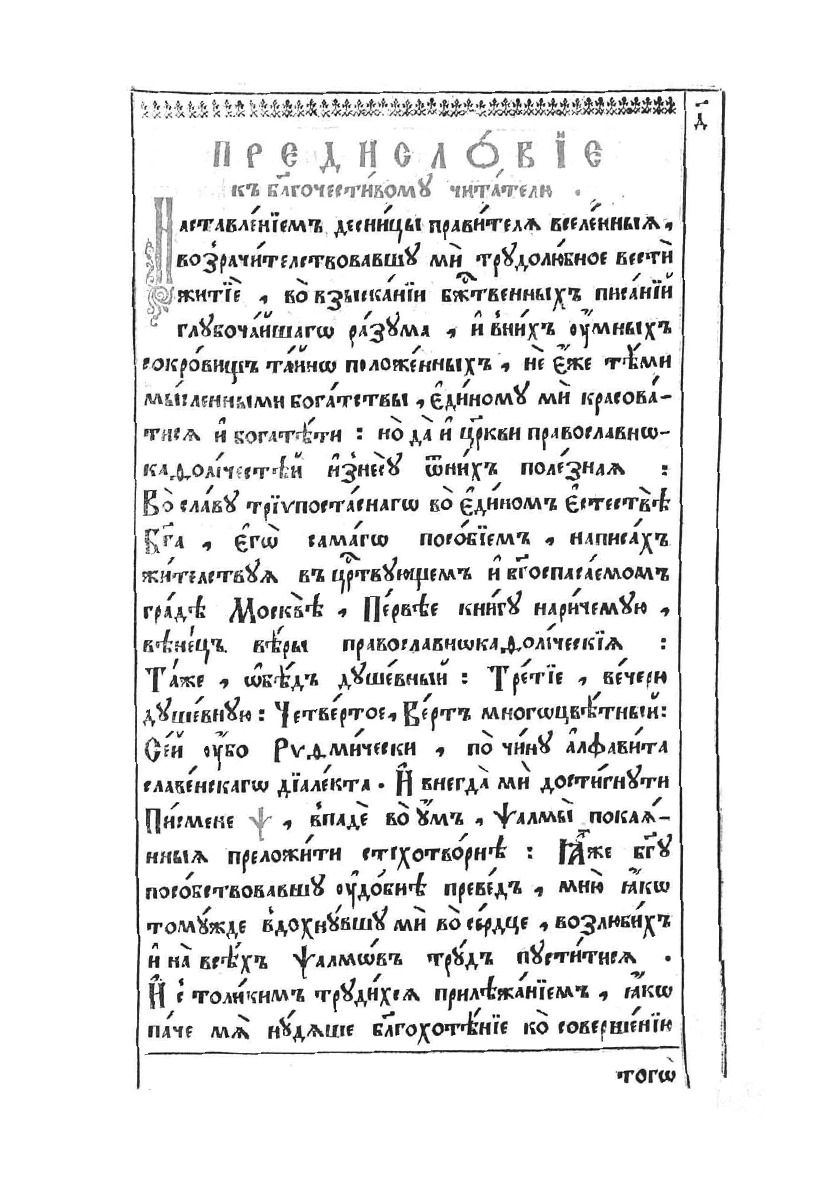 д҃
ПРЕДИСЛО́ВЇЕ
къ бл҃гочести́вомꙋ чита́телю .
Наставле́нїемъ десни́цы прави́телѧ вселе́нныѧ ,
возрачи́телствовавшꙋ мѝ трꙋдолю́бное вестѝ
житїѐ , во̀ взыска́нїи бж҃твенныхъ писа́нїй
глꙋбоча́йшагѡ ра́зꙋма , и҆ вни́хъ ᲂу҆́мныхъ
сокро́вищъ та́йнѡ положе́нныхъ , нѐ є҆́же тѣ́ми
мы́сленными бога́тствы , є҆ди́номꙋ мѝ красова́-
тисѧ и҆ богатѣ́ти : но̀ да̀ и҆ цр҃кви православнѡ-
каѳолі́честѣй и҆знесꙋ̀ ѿни́хъ поле́знаѧ :
Во̀ сла́вꙋ трїѵпоста́снагѡ во̀ є҆ди́номъ є҆стествѣ̀
Бг҃а , є҆гѡ̀ самагѡ посо́бїемъ , написа́хъ
жи́телствꙋѧ въ црⷭ҇твꙋющемъ и҆ бг҃оспаса́емомъ
гра́дѣ Москвѣ̀ , Пе́рвѣе кни́гꙋ нарича́емꙋю ,
вѣне́цъ вѣ́ры православнѡкаѳолі́ческїѧ :
Та́же , ѡ҆бѣ́дъ дꙋше́вный : Тре́тїе , ве́черю
дꙋше́внꙋю : Четве́ртое , Ве́ртъ многѡцвѣ́тный :
Се́й ᲂу҆́бо Риѳми́чески , по̀ чи́нꙋ а҆лфави́та
славе́нскагѡ дїале́кта . И҆ внегда̀ мѝ дости́гнꙋти
Пи́смене ѱ , впадѐ во̀ ᲂу҆́мъ , ѱалмы̀ покаѧ́-
нныѧ преложи́ти стїхотво́рнѣ : Ꙗ҆̀же бг҃ꙋ
посо́бствовавшꙋ ᲂу҆до́бнѣ преве́дъ , мню̀ ꙗ҆́кѡ
томꙋ́жде вдохнꙋ́вшꙋ мѝ во̀ се́рдце , возлюби́хъ
и҆ на̀ всѣ́хъ ѱалмѡ́въ трꙋ́дъ пꙋсти́тисѧ .
И҆ с̾ толи́кимъ трꙋди́хсѧ прилѣжа́нїемъ , ꙗ҆́кѡ
па́че мѧ̀ нꙋ́дѧше бл҃гохотѣ́нїе ко̀ соверше́нїю
тогѡ̀